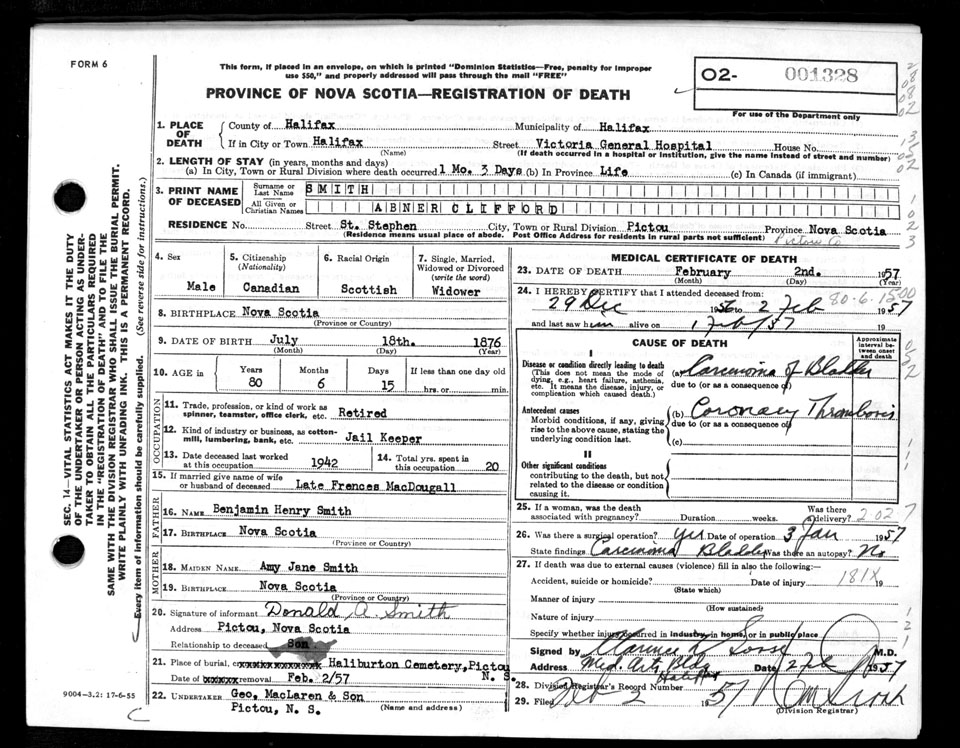 FORM 6
This form, if placed in an envelope, on which is printed "Dominion Statistics—Free, penalty for improper
use $50," and properly addressed will pass through the mail "FREE"
PROVINCE OF NOVA SCOTIA—REGISTRATION OF DEATH
O2- 001328
For use of the Department only
SEC. 14—VITAL STATISTICS ACT MAKES IT THE DUTY
OF THE UNDERTAKER OR PERSON ACTING AS UNDER-
TAKER TO OBTAIN ALL THE PARTICULARS REQUIRED
IN THE "REGISTRATION OF DEATH" AND TO FILE THE
SAME WITH THE DIVISION REGISTRAR WHO SHALL ISSUE THE BURIAL PERMIT.
WRITE PLAINLY WITH UNFADING INK. THIS IS A PERMANENT RECORD.
Every item of information should be carefully supplied. (See reverse side for instructions.)
1. PLACE OF DEATH
County of Halifax Municipality of Halifax
If in City or Town Halifax Street Victoria General Hospital House No.
(Name) (If death occurred in a hospital or institution, give the name instead of street and number)
2. LENGTH OF STAY (in years, months and days)
(a) In City, Town or Rural Division where death occurred 1 Mo. 3 Days (b) In Province Life (c) In Canada (if immigrant)
3. PRINT NAME OF DECEASED
Surname or Last Name SMITH
All Given or Christian Names ABNER CLIFFORD
RESIDENCE No. Street St. Stephen City, Town or Rural Division Pictou Province Nova Scotia
(Residence means usual place of abode. Post Office Address for residents in rural parts not sufficient)
4. Sex
Male
5. Citizenship
(Nationality)
Canadian
6. Racial Origin
Scottish
7. Single, Married,
Widowed or Divorced
(write the word)
Widower
8. BIRTHPLACE Nova Scotia
(Province or Country)
9. DATE OF BIRTH July 18th. 1876
(Month) (Day) (Year)
10. AGE IN
Years Months Days If less than one day old
80 6 15 hrs. or min.
OCCUPATION
11. Trade, profession, or kind of work as
spinner, teamster, office clerk, etc. Retired
12. Kind of industry or business, as cotton-
mill, lumbering, bank, etc. Jail Keeper
13. Date deceased last worked
at this occupation 1942
14. Total yrs. spent in
this occupation 20
15. If married give name of wife
or husband of deceased Late Frences MacDougall
FATHER
16. NAME Benjamin Henry Smith
17. BIRTHPLACE Nova Scotia
(Province or Country)
MOTHER
18. MAIDEN NAME Amy Jane Smith
19. BIRTHPLACE Nova Scotia
(Province or Country)
20. Signature of informant Donald A. Smith
Address Pictou, Nova Scotia
Relationship to deceased Son
21. Place of burial, Haliburton Cemetery, Pictou
N. S.
Date of removal Feb. 2/57
22. UNDERTAKER Geo. MacLaren & Son
Pictou, N. S. (Name and address)
9004—3.2: 17-6-55
MEDICAL CERTIFICATE OF DEATH
23. DATE OF DEATH February 2nd. 1957
(Month) (Day) (Year)
24. I HEREBY CERTIFY that I attended deceased from:
29 Dec 1956 to 2 Feb 1957
80-6-1500
and last saw him alive on 1 Feb/57 19
CAUSE OF DEATH
Approximate
interval be-
tween onset
and death
I
Disease or condition directly leading to death
(This does not mean the mode of
dying, e.g., heart failure, asthenia,
etc. It means the disease, injury, or
complication which caused death.)
(a) Carcinoma of Bladder
due to (or as a consequence of)
Antecedent causes
Morbid conditions, if any, giving
rise to the above cause, stating the
underlying condition last.
(b) Coronary Thrombosis
due to (or as a consequence of)
(c)
II
Other significant conditions
contributing to the death, but not
related to the disease or condition
causing it.
25. If a woman, was the death
associated with pregnancy? Duration weeks. Was there
a delivery? 2 02 7
26. Was there a surgical operation? yes Date of operation 3 Jan 1957
State findings Carcinoma Bladder Was there an autopsy? No
27. If death was due to external causes (violence) fill in also the following:—
Accident, suicide or homicide? Date of injury 181X 19
(State which)
Manner of injury
(How sustained)
Nature of injury
Specify whether injury occurred in industry, in home, or in public place
Signed by Clarence M.D.
Address Med. Arts Bldg Halifax Date 2 Feb 1957
28. Division Registrar's Record Number
29. Filed Feb 2 1957
(Division Registrar)